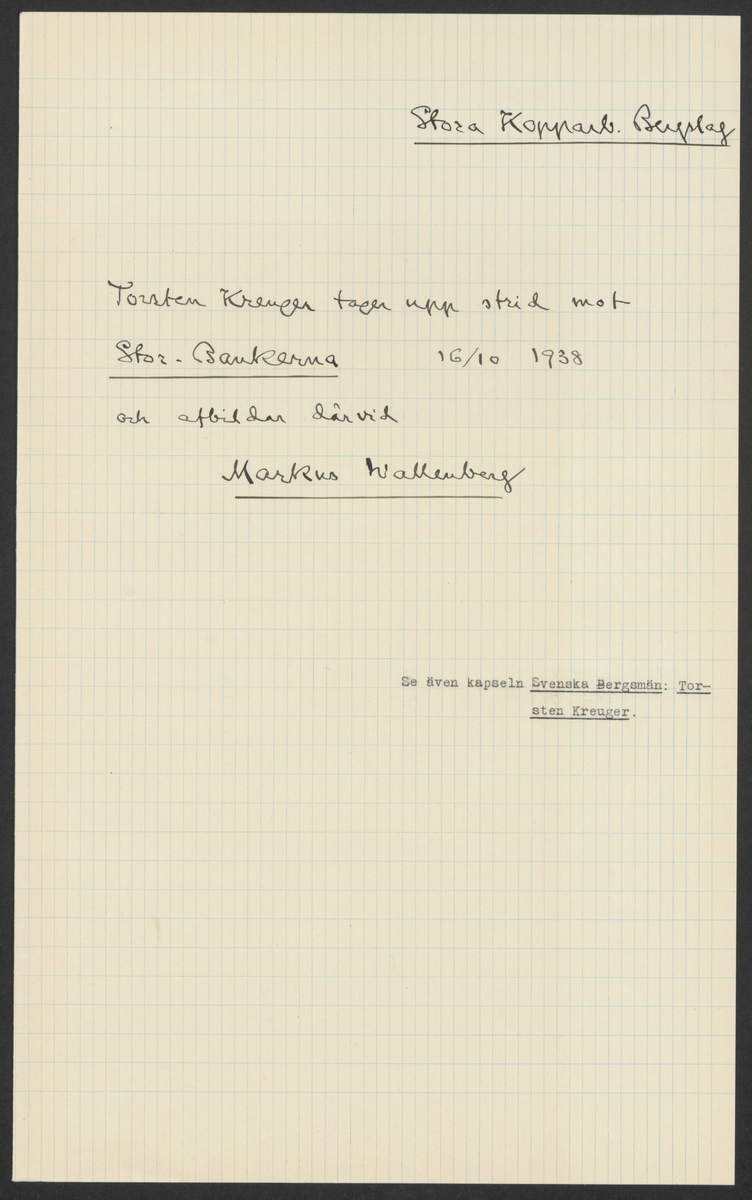 Stora Kopparb. Bergslag
Torsten Kreuger tager upp strid mot
Stor-Bankerna 16/10 1938
och afbildar därvid
Markus Wallenberg
Se även kapseln Svenska Bergsmän: Tor-
sten Kreuger.